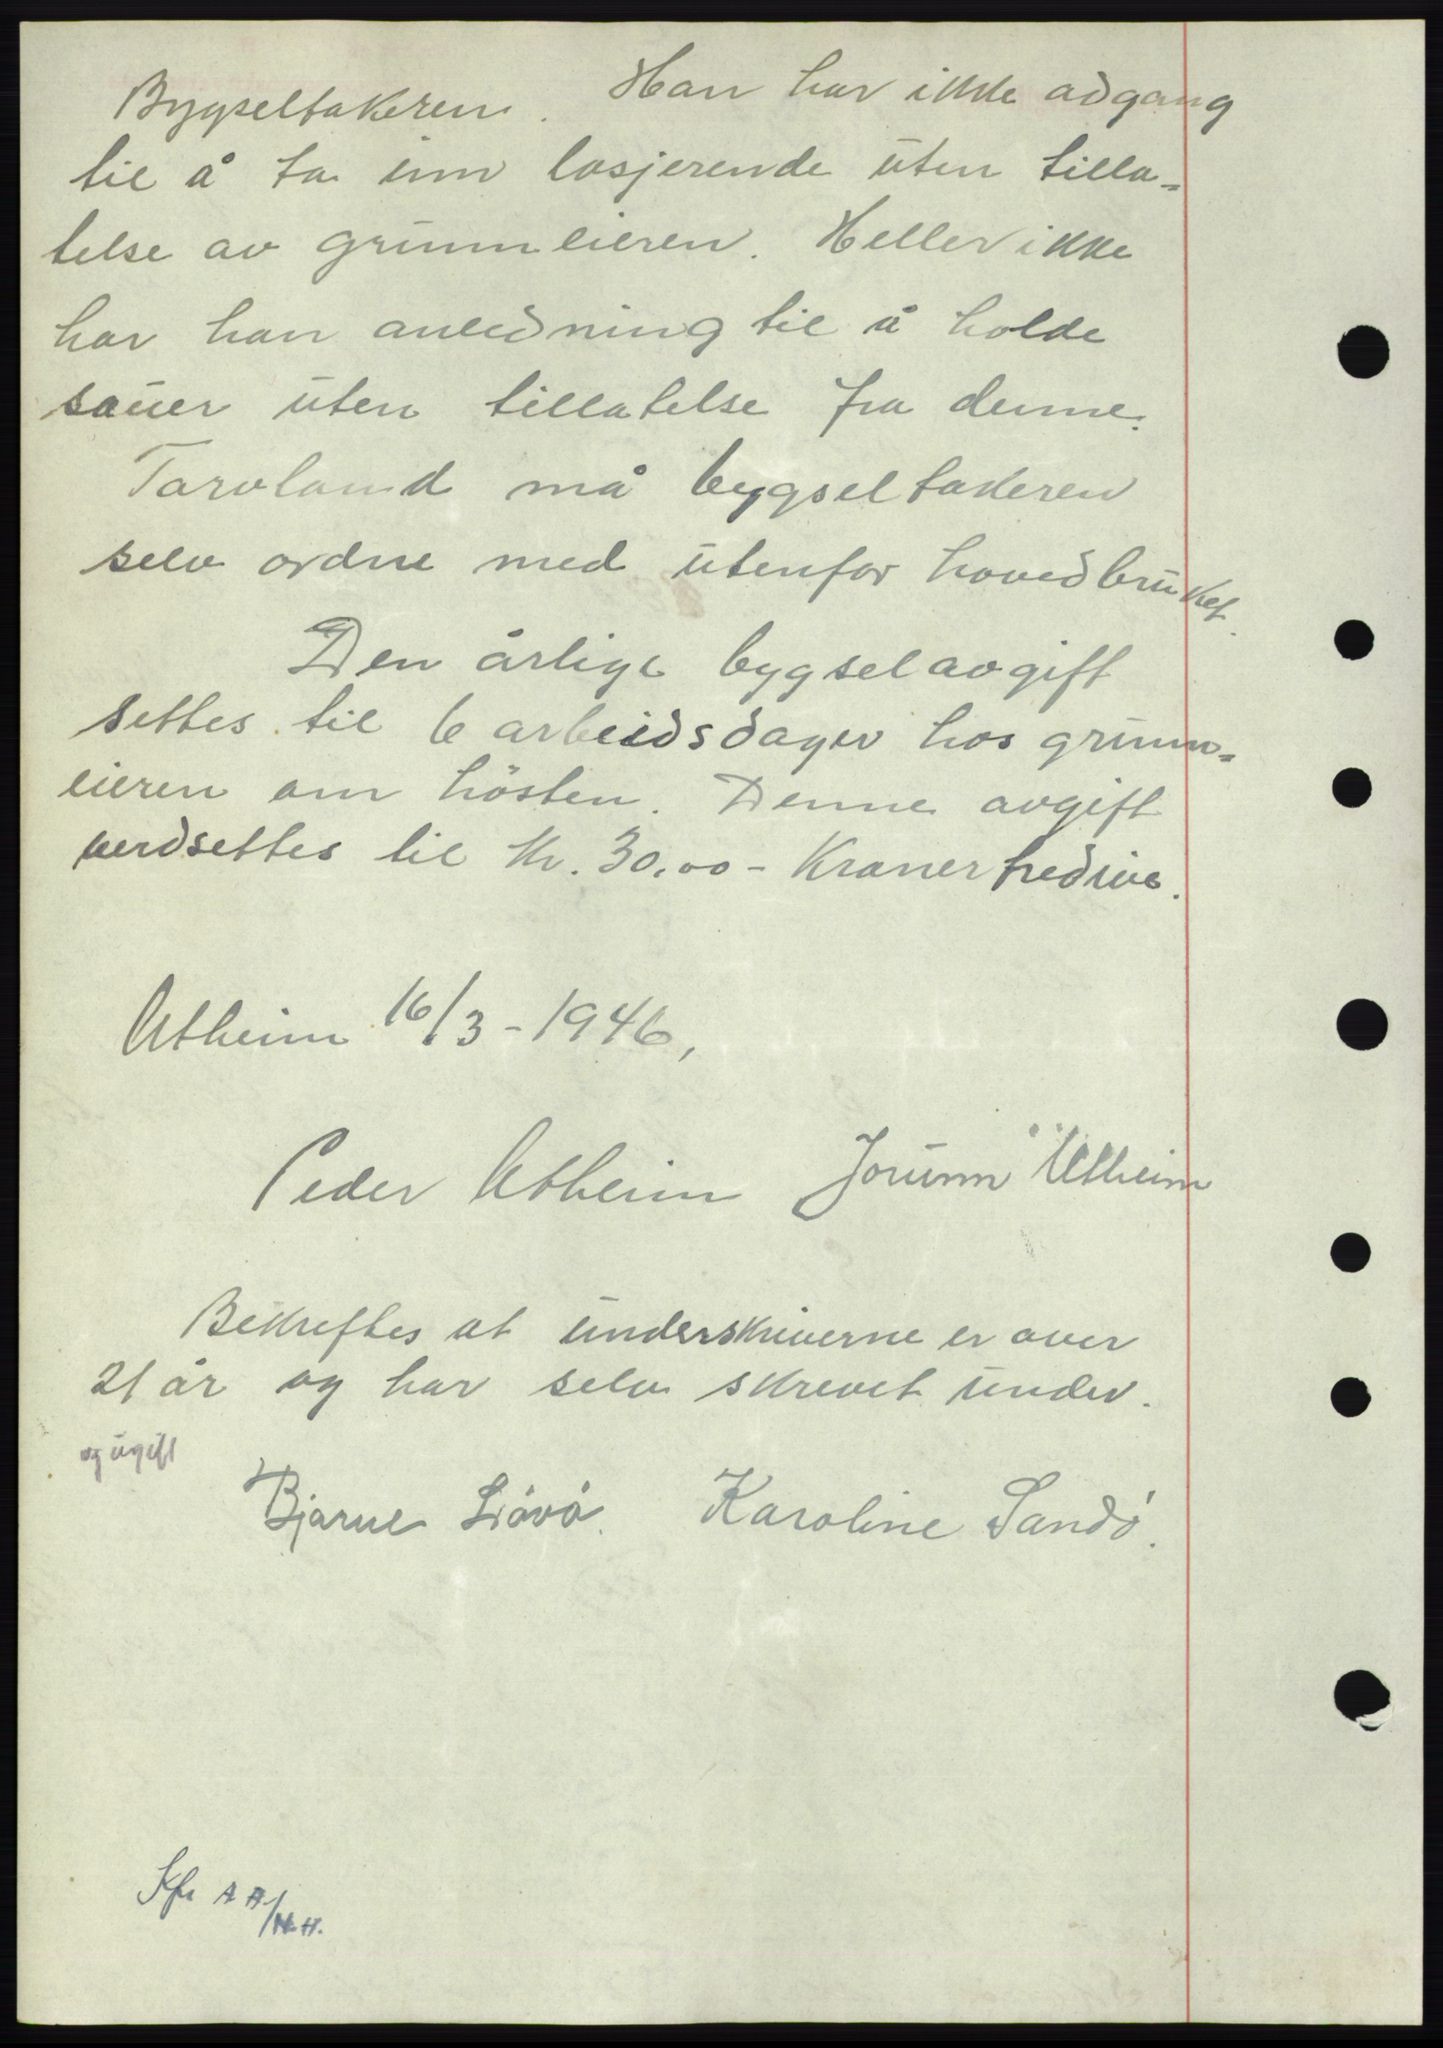 Bygseltakeren. Han har ikke adgang
til å ta inn losjerende uten tilla-
telse av grunneieren. Heller ikke
har han anledning til å holde
sauer uten tillatelse fra denne.
Tarvland må bygseltakeren
selv ordne med utenfor hovedbruket.
Den årlige bygselavgift
settes til 6 arbeidsdager hos grunn-
eieren om hösten. Denne avgift
verdsettes til kr. 30.00 - Kroner tredive.
Utheim 16/3 - 1946,
Peder Utheim Jorunn Utheim
Bekreftes at underskriverne er over
21 år og har selv skrevet under.
og ugift
Bjarne Lövö. Karoline Sandö.
Kfr AA/NH.